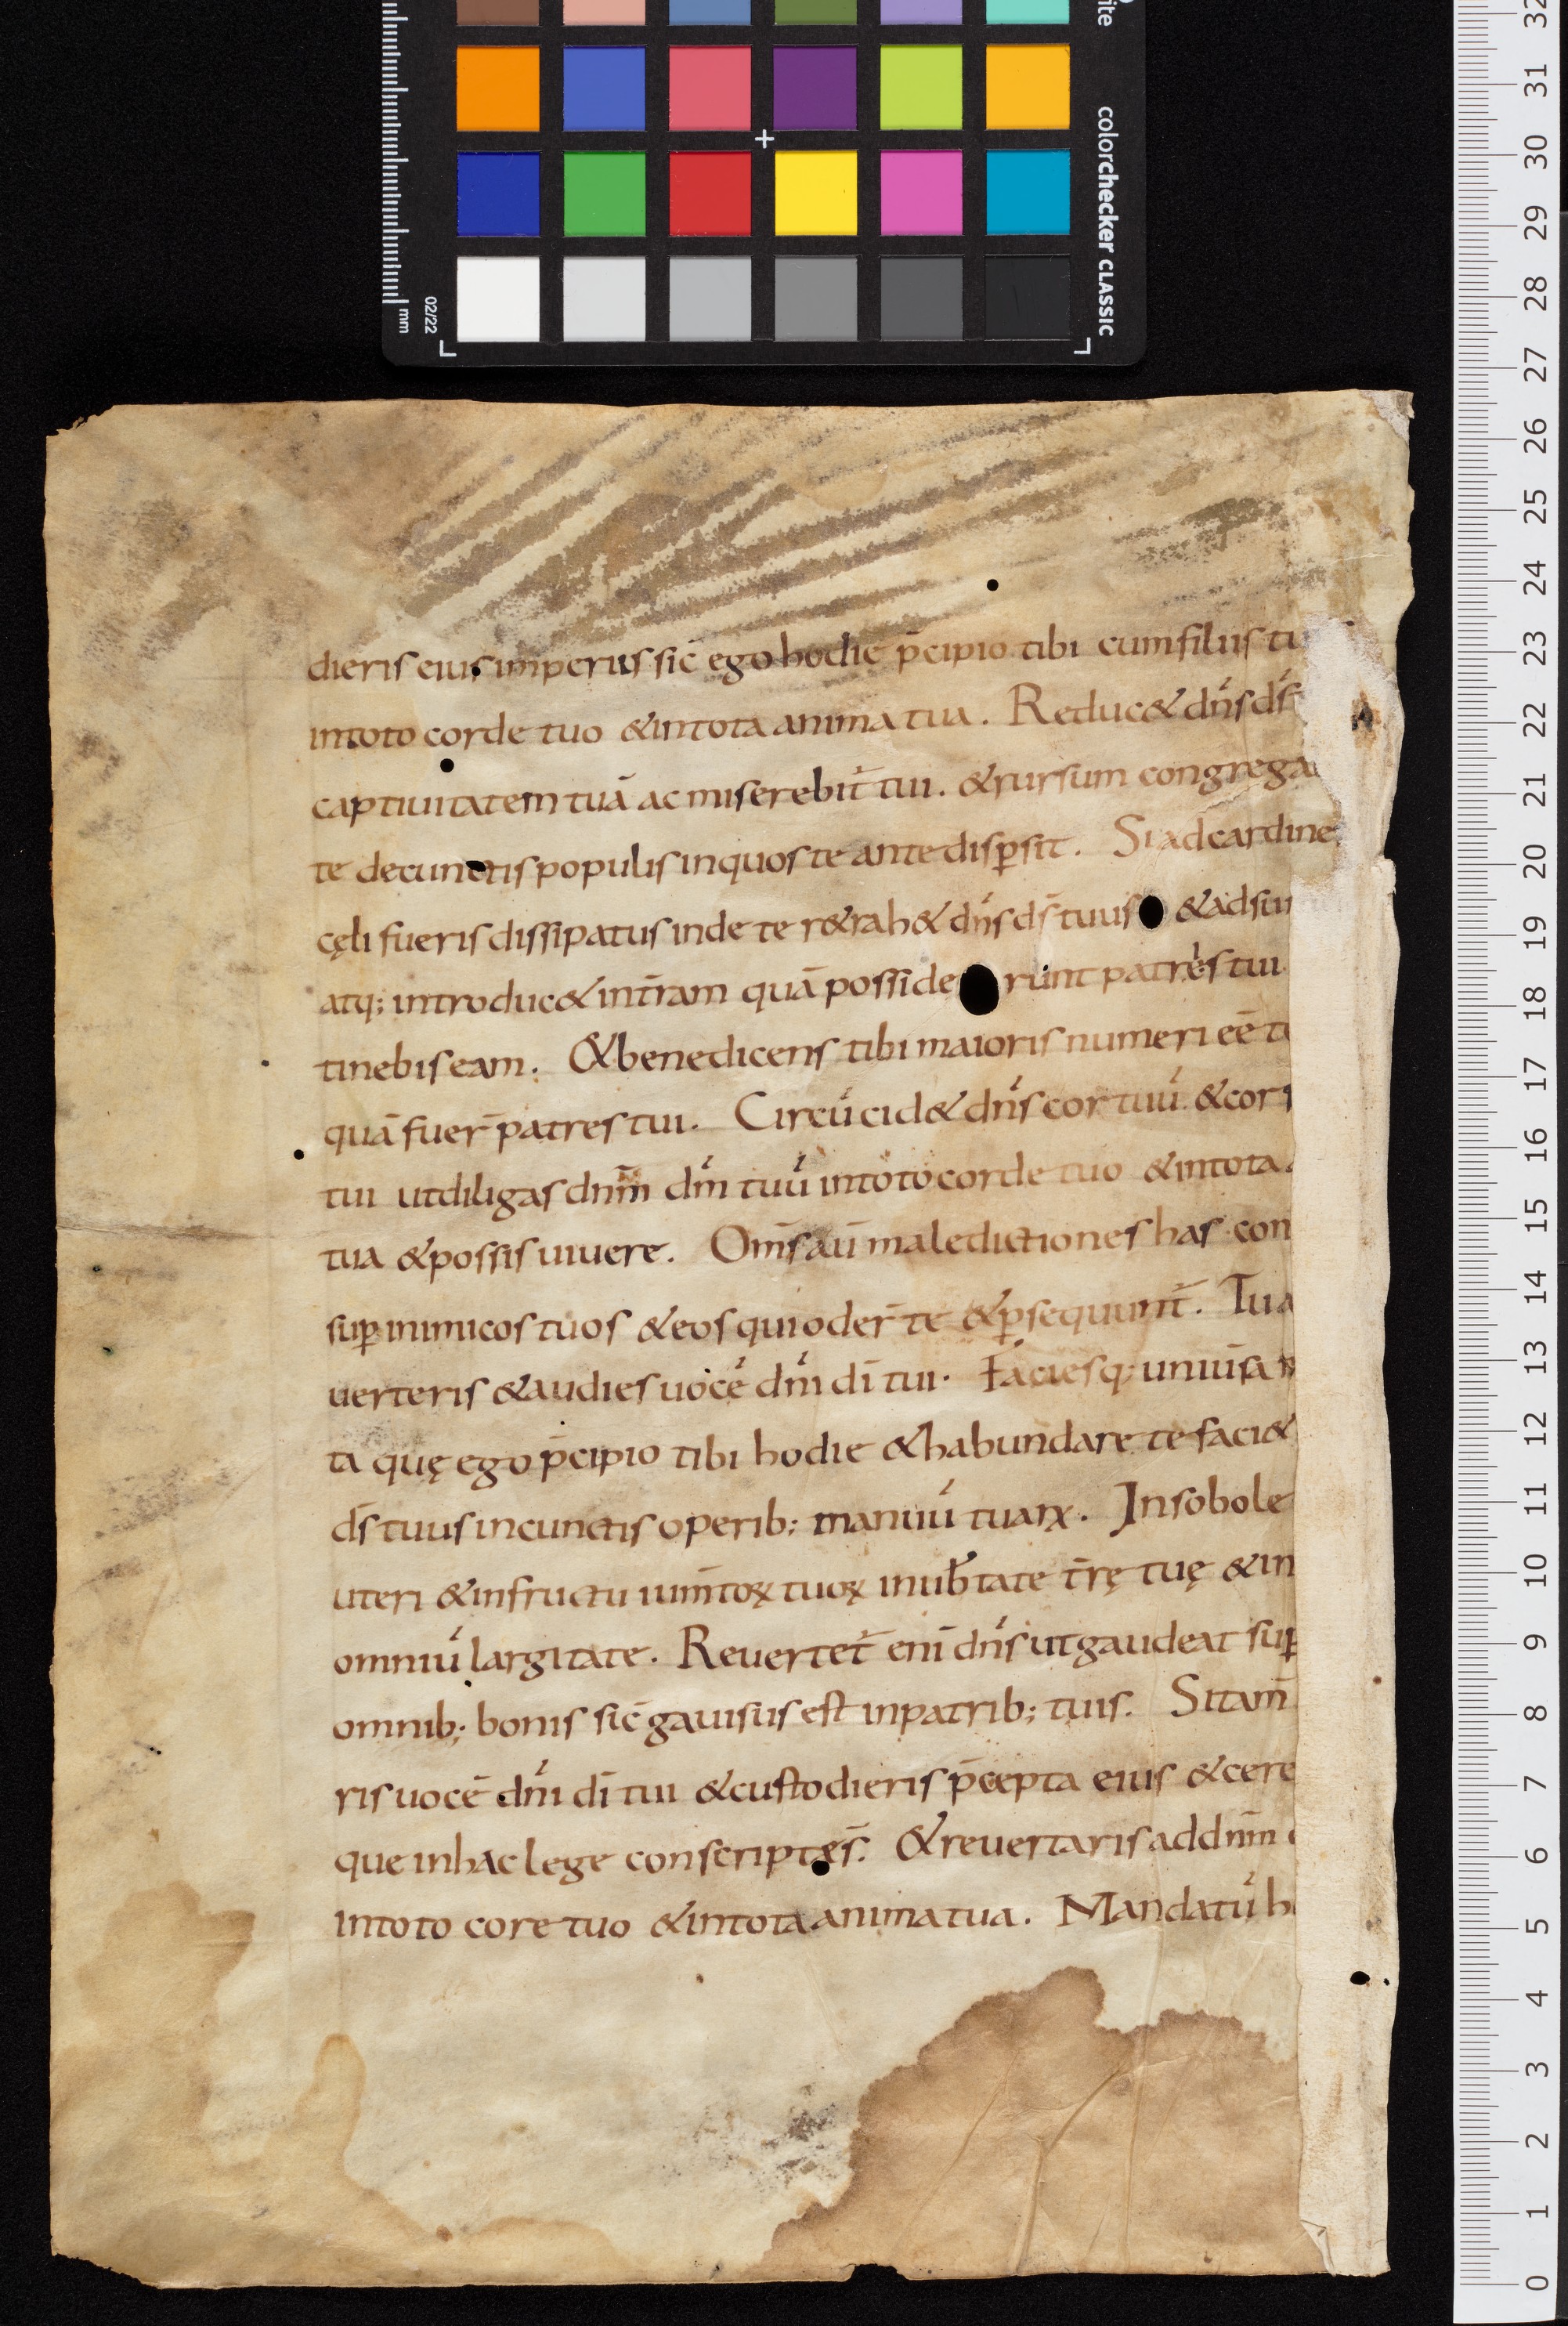 ite
colorchecker CLASSIC
02/22
mm
dieris eius imperiis sic̄ ego hodie p̄cipio tibi cum filiis tu
intoto corde tuo &intota anima tua. Reduc& dn̄s ds̄
captiuitatem tuā ac miserebit̄ tui. &rursum congrega
te decunctis populis inquos te ante disꝑsit. Siadcardine
cęli fueris dissipatus inde te r&rah& dn̄s ds̄ tuus &adsu
atq; introduc& int̄ram quā posside runt patres tui
tinebis eam. &benedicens tibi maioris numeri eē te
quā fuer̄ patres tui. Circūcid& dn̄s cor tuū &cor
tui utdiligas dnm̄ dm̄ tuū intoto corde tuo &intota
tua &possis uiuere. Om̄s aū maledictiones has con
suꝑ inimicos tuos &eos qui oder̄ te &ꝑsequunt̄. Tu a
uerteris &audies uocē dn̄i dī tui. Faciesq; uniūsa
ta quę ego p̄cipio tibi hodie &habundare te faci&
ds̄ tuus incunctis operib; manuū tuaꝝ. Insobole
uteri &infructu iumm̄toꝝ tuoꝝ inub̄tate t̄rę tuę &in
omniū largitate. Reuertet̄ eni̅ dn̄s utgaudeat suꝑ
omnib; bonis sic̄ gauisus est inpatrib; tuis. Sitam̄
ris uocē dn̄i dī tui &custodieris p̄cepta eius &cere
que inhac lege conscriptęs̄. &reuertaris addnm̄
intoto core tuo &intota anima tua. Mandatū h
32
31
30
29
28
27
26
25
24
23
22
21
20
19
18
17
16
15
14
13
12
11
10
9
8
7
6
5
4
3
2
1
0